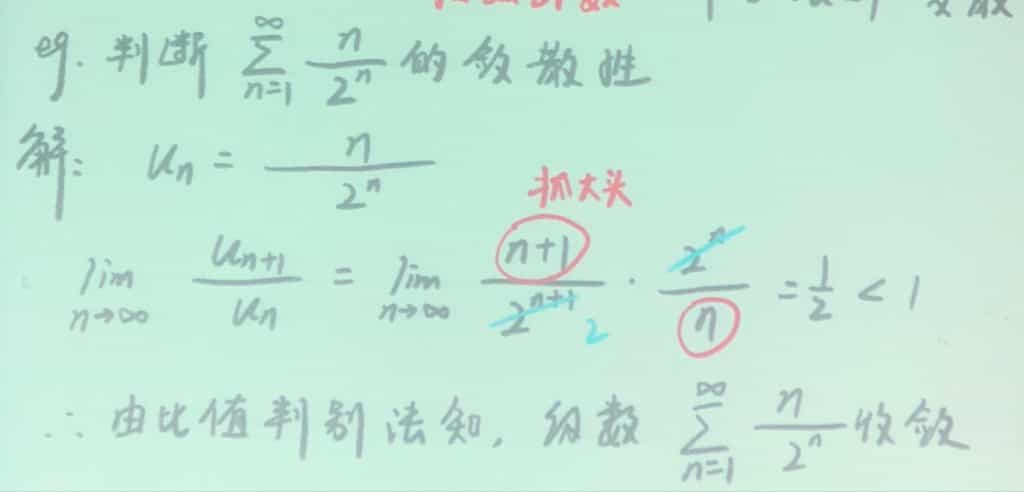 eg. 判断 ∑_{n=1}^{∞} n/2^n 的敛散性
解: u_n = n/2^n
抓大头
lim_{n→∞} u_{n+1}/u_n = lim_{n→∞} (n+1)/2^{n+1} · 2^n/n = 1/2 < 1
2
∴ 由比值判别法知, 级数 ∑_{n=1}^{∞} n/2^n 收敛